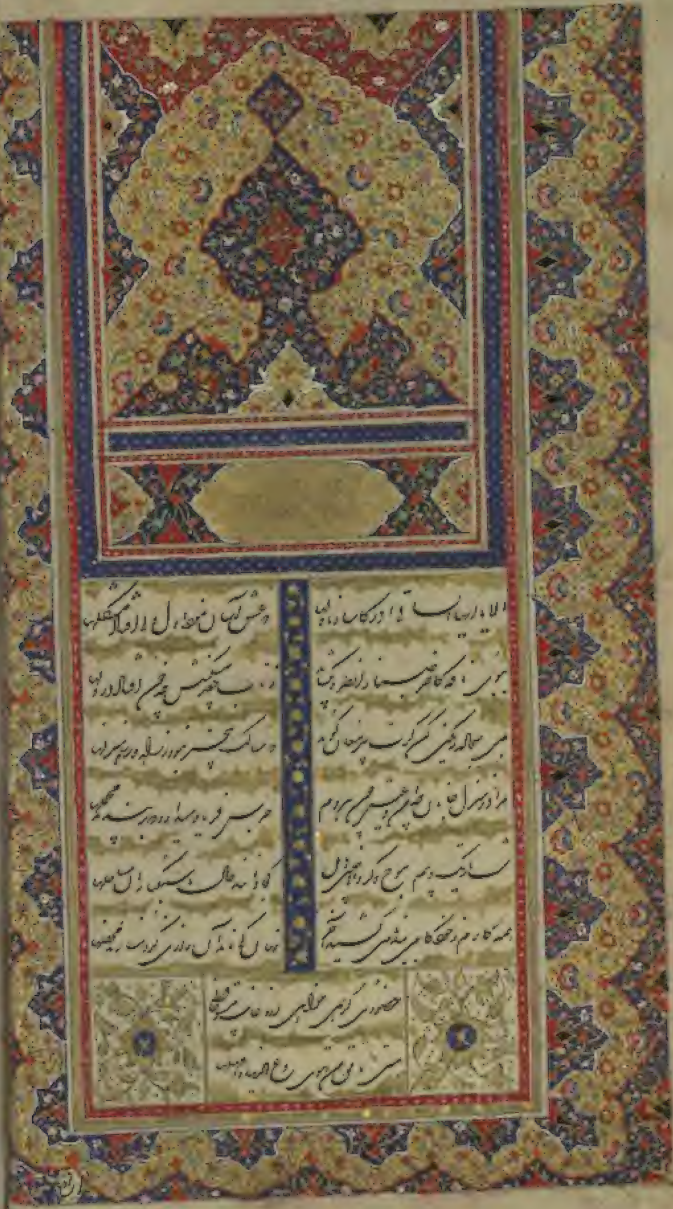 الا یا ایها الساقی ادر کاسا و ناولها که عشق آسان نمود اول ولی افتاد مشکلها
ببوی نافه کاخر صبا زان طره بگشاید ز تاب جعد مشکینش چه خون افتاد در دلها
بمی سجاده رنگین کن گرت پیر مغان گوید که سالک بیخبر نبود ز راه و رسم منزلها
مرا در منزل جانان چه امن و عیش چون هر دم جرس فریاد میدارد که بربندید محملها
شب تاریک و بیم موج و گردابی چنین هایل کجا دانند حال ما سبکباران ساحلها
همه کارم ز خودکامی ببدنامی کشید آخر نهان کی ماند آن رازی کزو سازند محفلها
حضوری گر همی خواهی ازو غایب مشو حافظ
متی ما تلق من تهوی دع الدنیا و اهملها